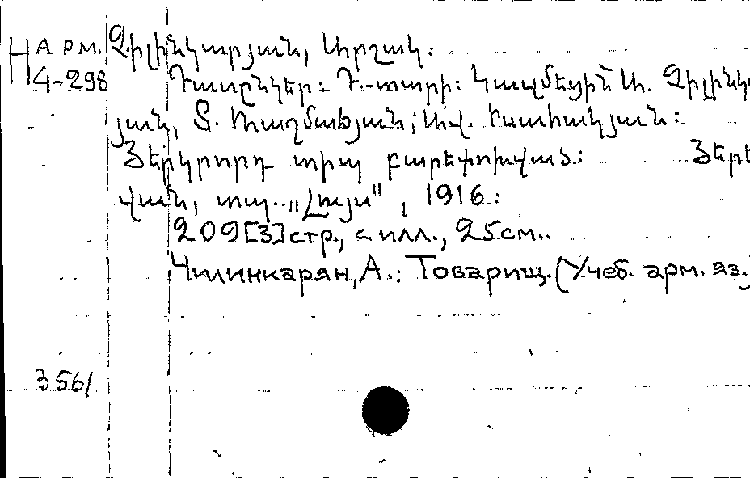 Н арм. Չիլինկարյան, Արշակ:
4-298 Դասընկեր: Դ.-տարի: Կազմեցին Ա. Չիլինկ
յան, Տ. Ռազմաբյան, Ավ. Իսահակյան:
Յերկրորդ տիպ բարեփոխված: Յերե
վան, տպ. „Լույս", 1916:
209[3]стр., с илл., 25см.
Чилинкарян, А.: Товарищ. (Учеб. арм. яз.
3561